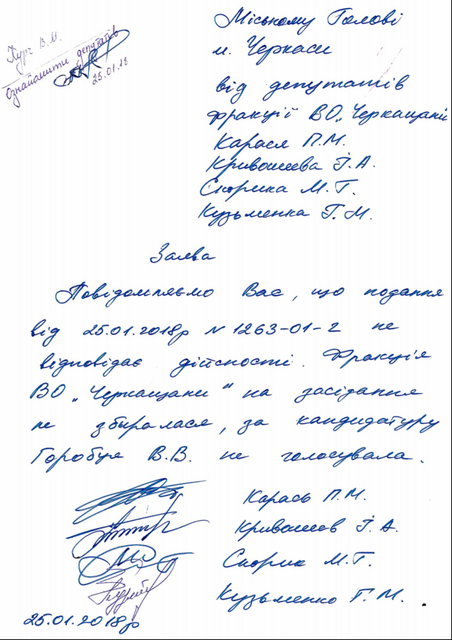 Міському Голові
м. Черкаси
від депутатів
фракції ВО „Черкащани
Карася П.М.
Кривошеєва Ї.А.
Скорика М.Г.
Кузьменка Г.М.
В.М.
Ознайомити депутатів
25.01.18
Заява
Повідомляємо Вас, що подання
від 25.01.2018р N 1263-01-2 не
відповідає дійсності. Фракція
ВО „Черкащани" на засідання
не збиралася, за кандидатуру
В.В. не голосувала.
Карась П.М.
Кривошеєв Ї.А.
Скорик М.Г.
Кузьменко Г.М.
25.01.2018р